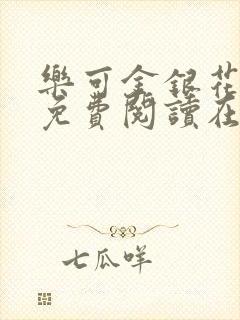 樂可金銀花
免費閱讀在
七瓜咩